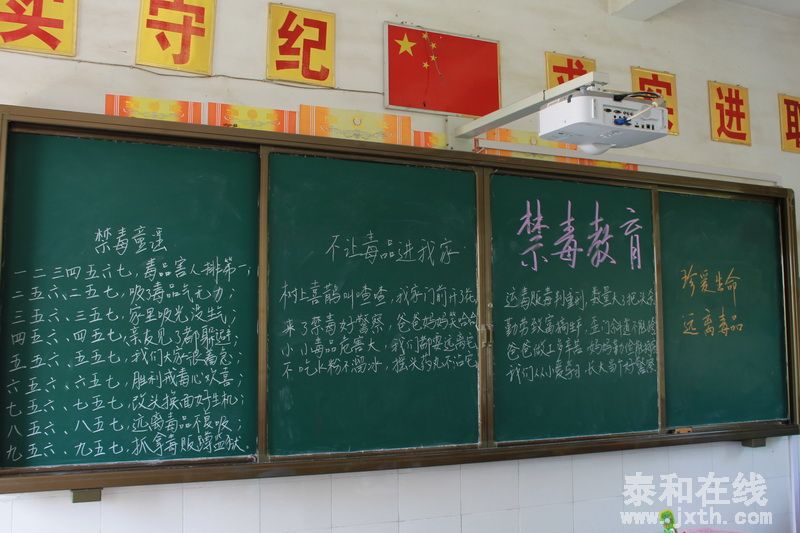 实守纪
求实
进取
禁毒教育
禁毒童谣
一二三四五六七,毒品害人排第一;
二五六、二五七,吸了毒品气无力;
三五六、三五七,家里吸光没生气;
四五六、四五七,亲友见了都躲避;
五五六、五五七,我们大家被毒危;
六五六、六五七,胜利戒毒心欢喜;
七五六、七五七,改头换面好生机;
八五六、八五七,远离毒品不吸;
九五六、九五七,抓拿毒贩蹲监狱.
不让毒品进我家
树上喜鹊叫喳喳,我家门前开了花
来了禁毒好警察,爸爸妈妈笑哈哈
小小毒品危害大,我们都要远离它
不吃水粉不溜冰,摇头药丸不沾它
运毒贩毒判重刑,数量大了把头杀
勤劳致富
爸爸做工多辛苦 妈妈勤俭
我们从小爱学习 长大当个好警察
珍爱生命
远离毒品
泰和在线
www.jxth.com